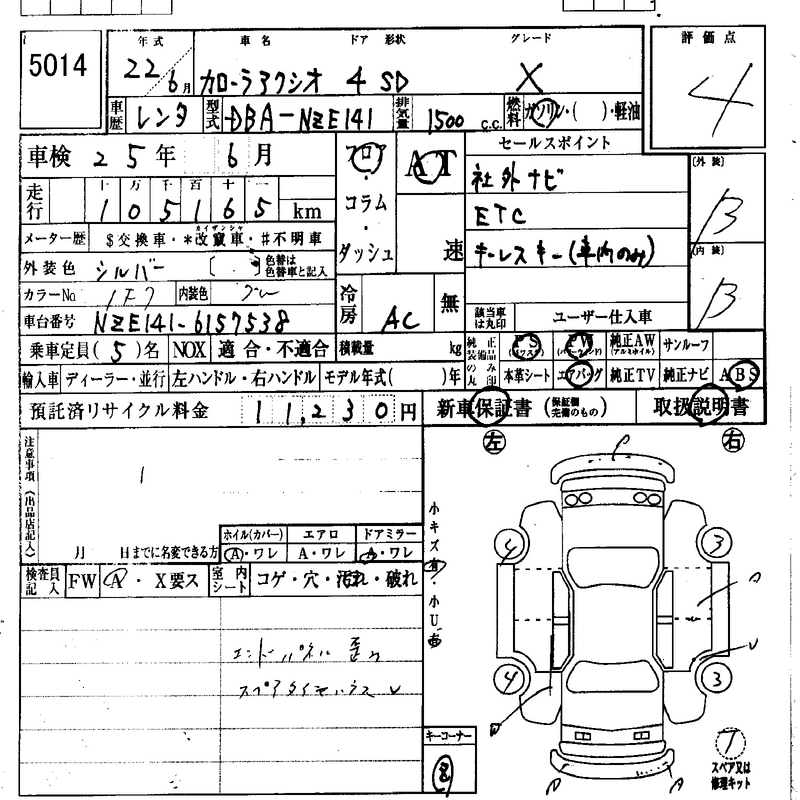 5014
年式 車名 ドア 形状 グレード 評価点
22/6月 カローラアクシオ 4 SD X 4
車歴 レンタ 型式 DBA-NZE141 排気量 1500 c.c. 燃料 ガソリン・( )・軽油
車検 25年 6月 フロア・コラム・ダッシュ AT 速 セールスポイント
走行 十 万 千 百 十 一
105165 km
社外ナビ 〔外装〕 B
ETC
キーレスキー(車内のみ) 〔内装〕 B
メーター歴 $交換車・*改竄車・#不明車
カイザンシャ
外装色 シルバー 〔 〕 色替は色替車と記入
カラーNo 1F7 内装色 グレー 冷房 AC 無
該当車は丸印 ユーザー仕入車
車台番号 NZE141-6157538
乗車定員(5)名 NOX 適合・不適合 積載量 kg
純正装備品のみ丸印 PS (パワステ) PW (パワーウィンド) 純正AW (アルミホイル) サンルーフ
輸入車 ディーラー・並行 左ハンドル・右ハンドル モデル年式( )年 本革シート エアバッグ 純正TV 純正ナビ ABS
預託済リサイクル料金 11,230円 新車保証書 (保証欄完備のもの) 取扱説明書
注意事項(出品店記入)
左 右
月 日までに名変できる方
ホイル(カバー) エアロ ドアミラー
A・ワレ A・ワレ A・ワレ
検査員記入 FW A・X要ス 室内シート コゲ・穴・汚れ・破れ
小キズ有・小U有
エンドパネル 歪
スペアタイヤハウス
4 3
4 3
キーコーナー
T
スペア又は修理キット